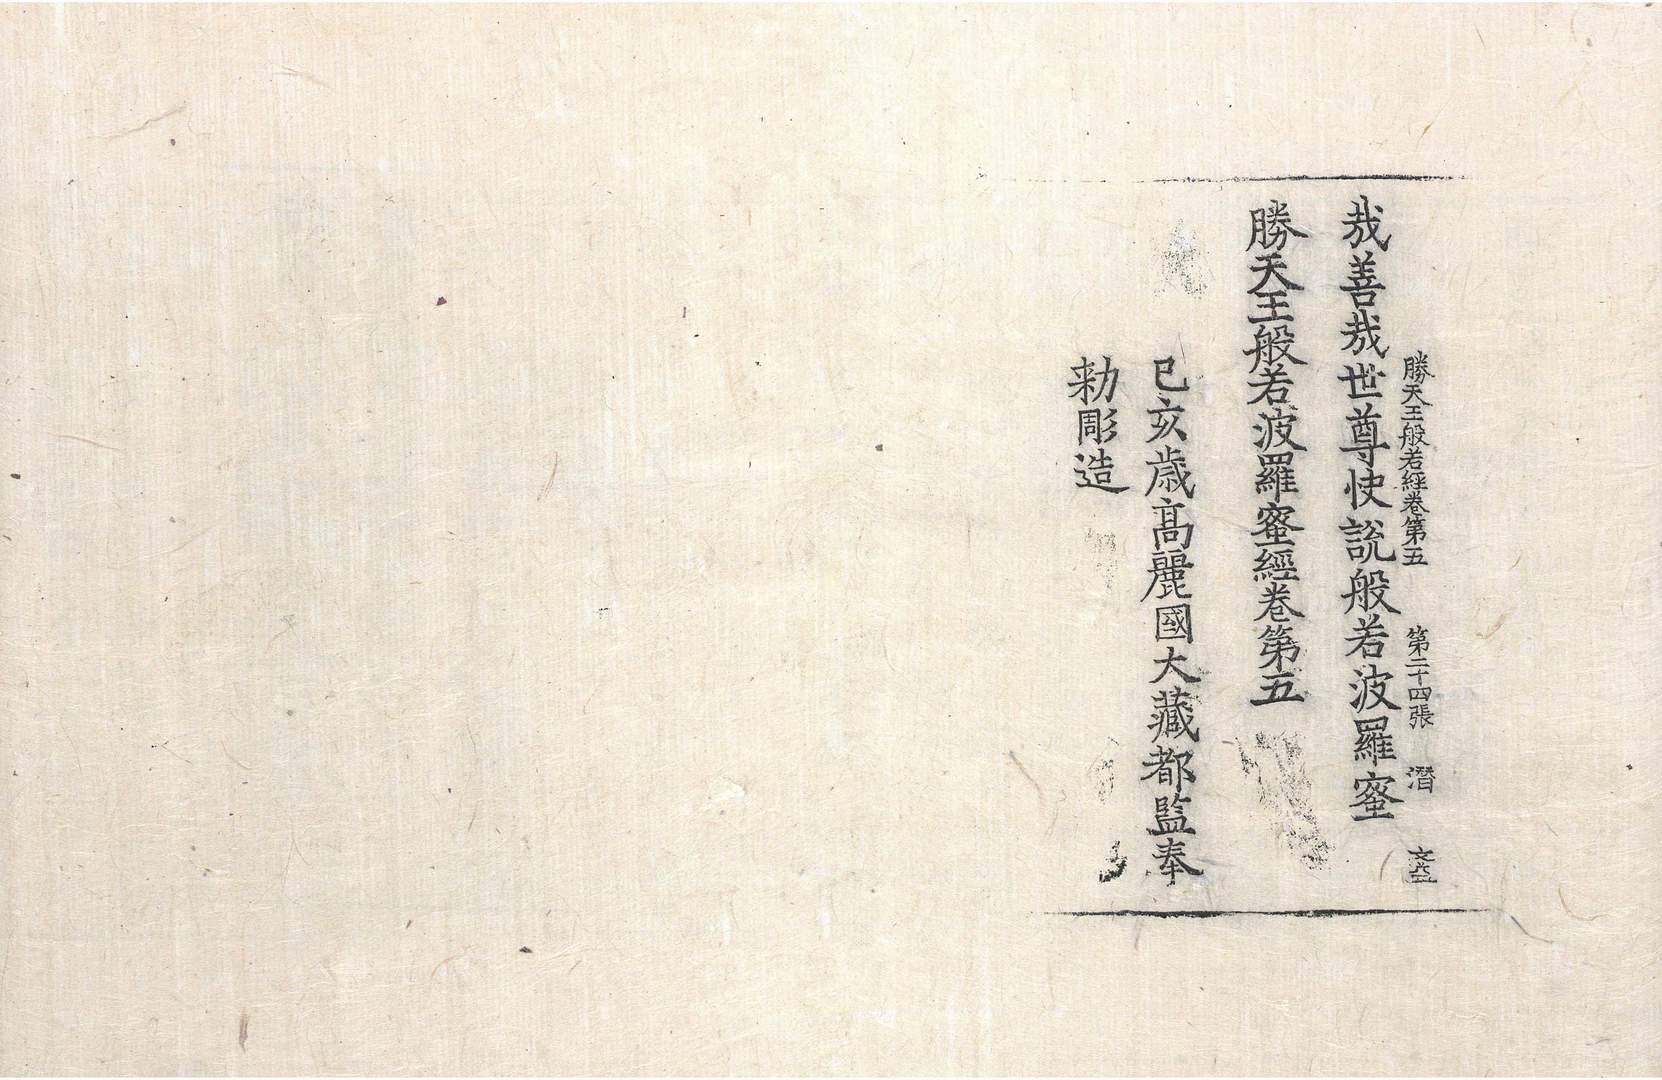 勝天王般若經卷第五 第二十四張 潛 文益
㢤善㢤世尊快說般若波羅蜜
勝天王般若波羅蜜經卷第五
己亥歲高麗國大藏都監奉
勑彫造